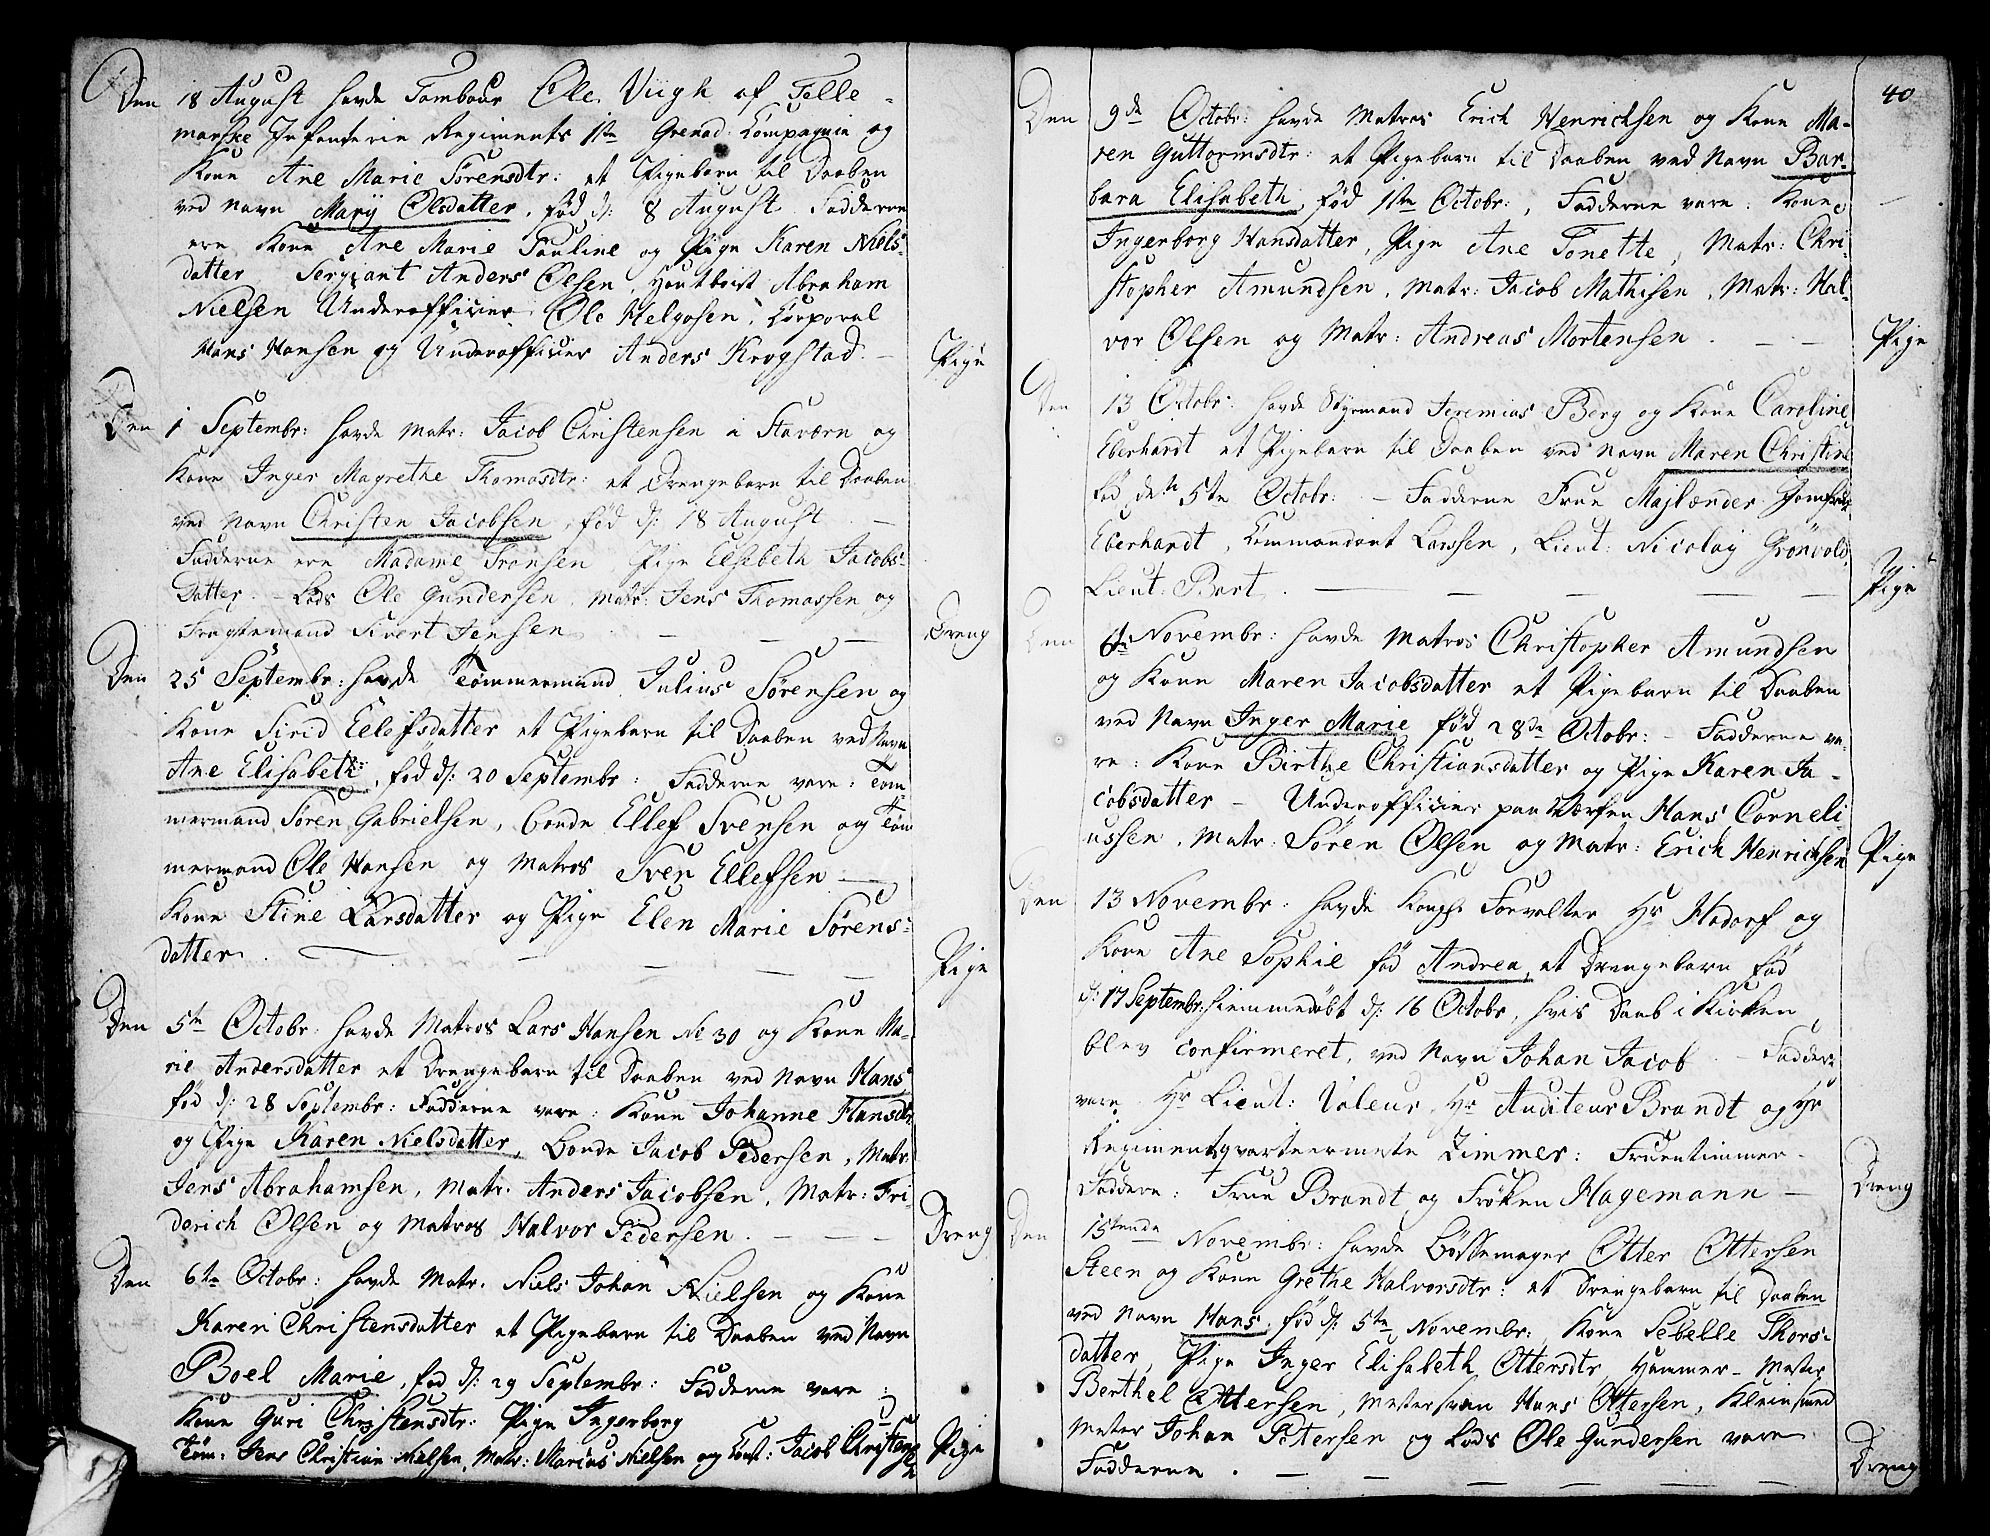 Den 18 August havde Tambour Ole Viigh af Telle-
marske Infanterie Regiments 1ste Grenad: Compagnie og
Kone Ane Marie Sørensdtr: et Pigebarn til Daaben
ved Navn Marÿ Olsdatter, fød d: 8 August. Fadderne
ere Kone Ane Marie Pauline og Pige Karen Niels-
datter Sergiant Anders Olsen, Houtboist Abraham
Nielsen Underofficier Ole Helgesen, Corporal
Hans Hansen og Underofficier Anders Krogstad. —
Pige
Den 1 Septembr: havde Matr: Jacob Christensen i Staværn og
Kone Inger Magrethe Thomasdtr: et Drengebarn til Daaben
ved Navn Christen Jacobsen, fød d: 18 August. —
Fadderne ere Madame Fransen, Pige Elsebeth Jacobs-
Datter. – Lods Ole Gundersen, Matr: Jens Thomassen og
Sivert Jensen — — —
Dreng
Den 25 Septembr: havde Tømmermand Julius Sørensen og
Kone Sirid Ellefsdatter et Pigebarn til Daaben ved Navn
Ane Elisabeth, fød d: 20 Septembr: Fadderne vare: Tøm-
mermand Søren Gabrielsen, Bonde Ellef Svensen og Tøm
mermand Ole Hansen og Matros Sven Ellefsen —
Kone Stine Larsdatter og Pige Elen Marie Sørens-
datter. — — — —
Pige
Den 5te Octobr: havde Matros Lars Hansen No 30 og Kone Ma-
rie Andersdatter et Drengebarn til Daaben ved Navn Hans
fød d: 28 Septembr: Fadderne vare: Kone Johanne Hansdtr
og Pige Karen Nielsdatter, Bonde Jacob Pedersen, Matr:
Jens Abrahamsen, Matr. Anders Jacobsen, Matr: Fri-
derich Olsen og Matros Halvor Pedersen. — — —
Dreng
Den 6te Octobr: havde Matr. Niels Johan Nielsen og Kone
Karen Christensdatter et Pigebarn til Daaben ved Navn
Boel Marie, fød d: 29 Septembr: Fadderne vare:
Kone Guri Christensdtr: Pige Ingerborg
Tøm: Jens Christian Nielsen, Matr: Marius Nielsen og Jacob Christensen
Pige
40
Den 9de Octobr: havde Matros Erich Henrichsen og Kone Ma-
ren Guttormsdtr: et Pigebarn til Daaben ved Navn Bar-
bara Elisabeth, fød 1ste Octobr:, Fadderne vare: Kone
Ingerborg Hansdatter, Pige Ane Tonette, Matr: Chri-
stopher Amundsen, Matr: Jacob Mathisen, Matr: Hal-
vor Olsen og Matr: Andreas Mortensen. — —
Pige
Den 13 Octobr: havde Styrmand Jeremias Berg og Kone Caroline
Eberhardt et Pigebarn til Daaben ved Navn Maren Christine
fød den 5te Octobr: — Fadderne Frue Majlænder Jomfrue
Eberhardt, Commandant Larssen, Lieut: Nicolay Grønvold,
Lieut: Bart. — — — — —
Pige
Den 6te Novembr: havde Matros Christopher Amundsen
og Kone Maren Jacobsdatter et Pigebarn til Daaben
ved Navn Inger Marie fød 28de Octobr: – Fadderne va-
re: Kone Birthe Christiansdatter og Pige Karen Ja-
cobsdatter – Underofficier paa Værfen Hans Corneli-
ussen, Matr: Søren Olsen og Matr: Erich Henrichsen
Pige
Den 13 Novembr: havde Forvalter Hr Hadorf og
Kone Ane Sophie fød Andrea, et Drengebarn fød
d: 17 Septembr: hiemmedøbt d: 16 Octobr, hvis Daab i Kirken
blev confirmeret, ved Navn Johan Jacob. – Faddere
vare Hr Lieut: Valeur, Hr Auditeur Brandt og Hr
Regimentsqvarteermester Zimmer: Fruentimmer-
Faddere: Frue Brandt og Frøken Hagemann —
Dreng
Den 15tende Novembr: havde Bøssemager Otter Ottersen
Steen og Kone Grethe Halvorsdtr: et Drengebarn til Daaben
ved Navn Hans, fød d: 5te Novembr:, Kone Sebelle Thors-
datter, Pige Inger Elisabeth Ottersdtr, Hammer-Mester
Berthel Ottersen, Mestersvan Hans Ottersen, Kleinsmed
Mester Johan Petersen og Lods Ole Gundersen vare
Fadderne. — — — — —
Dreng